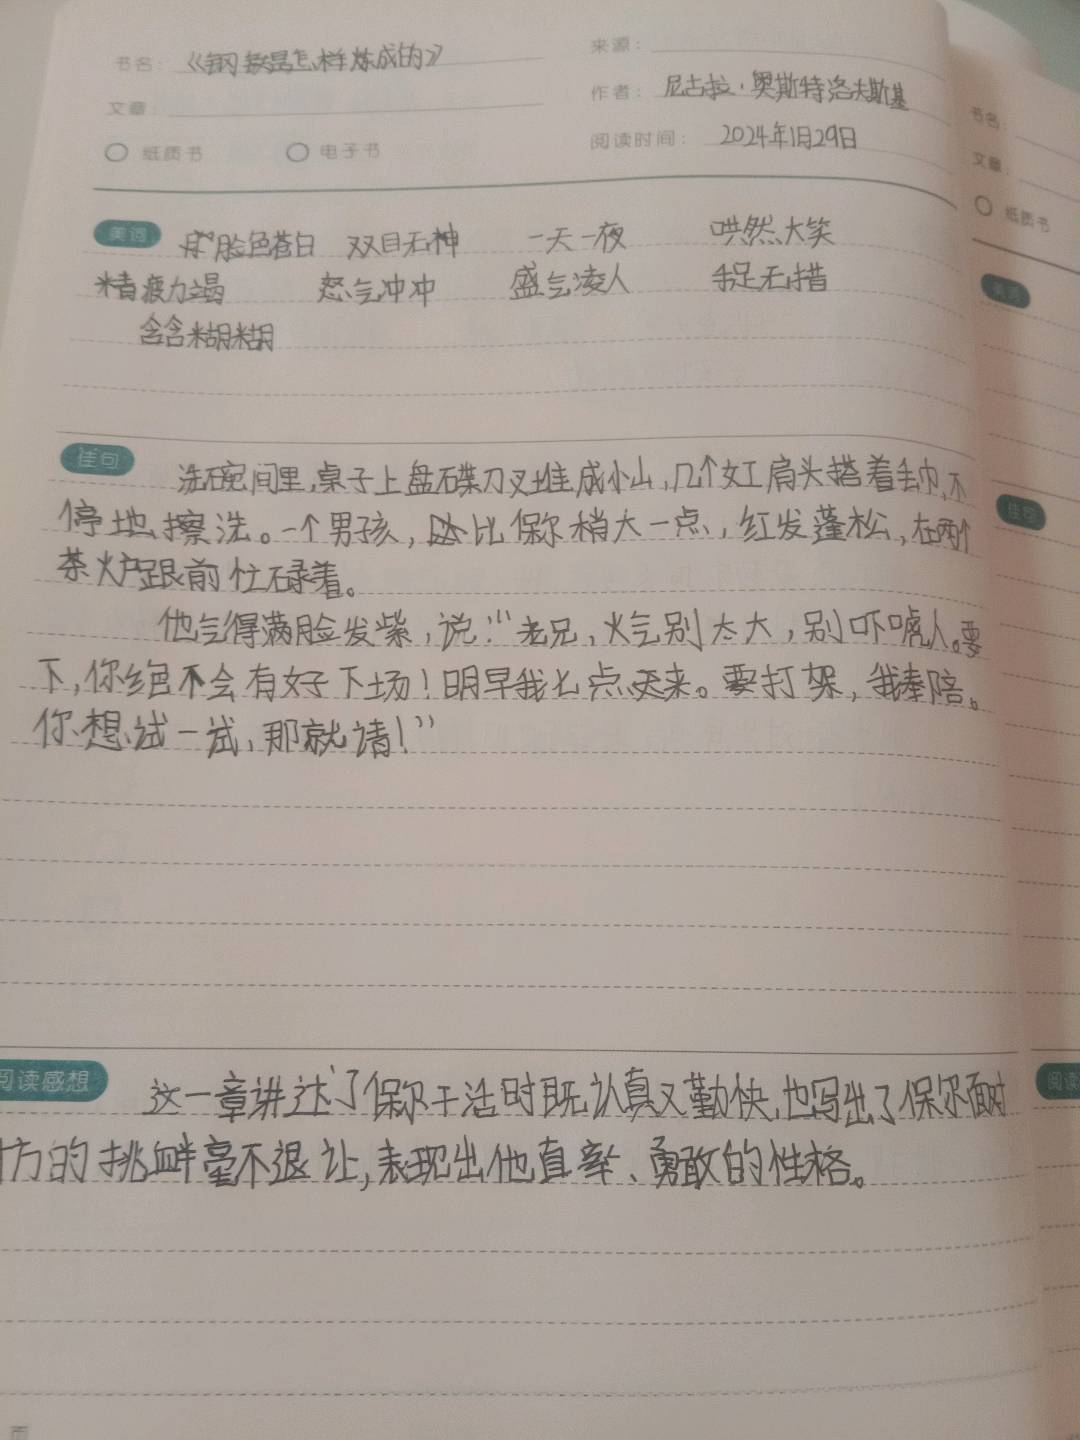 书名：《钢铁是怎样炼成的》
来源：
文章：
作者：尼古拉·奥斯特洛夫斯基
纸质书 电子书
阅读时间：2024年1月29日
美词 脸色苍白 双目无神 一天一夜 哄然大笑
精疲力竭 怒气冲冲 盛气凌人 手足无措
含含糊糊
佳句 洗碗间里,桌子上盘碟刀叉堆成小山,几个女工肩头搭着毛巾,不
停地擦洗。一个男孩,比保尔稍大一点,红发蓬松,在两个
茶炉跟前忙碌着。
他气得满脸发紫,说:“老兄,火气别太大,别吓唬人。要
下,你绝不会有好下场!明早我七点来。要打架,我奉陪。
你想试一试,那就请!”
阅读感想 这一章讲述了保尔干活时既认真又勤快,也写出了保尔面对
方的挑衅毫不退让,表现出他直率、勇敢的性格。
书名：
文章：
纸质书
美词
佳句
阅读